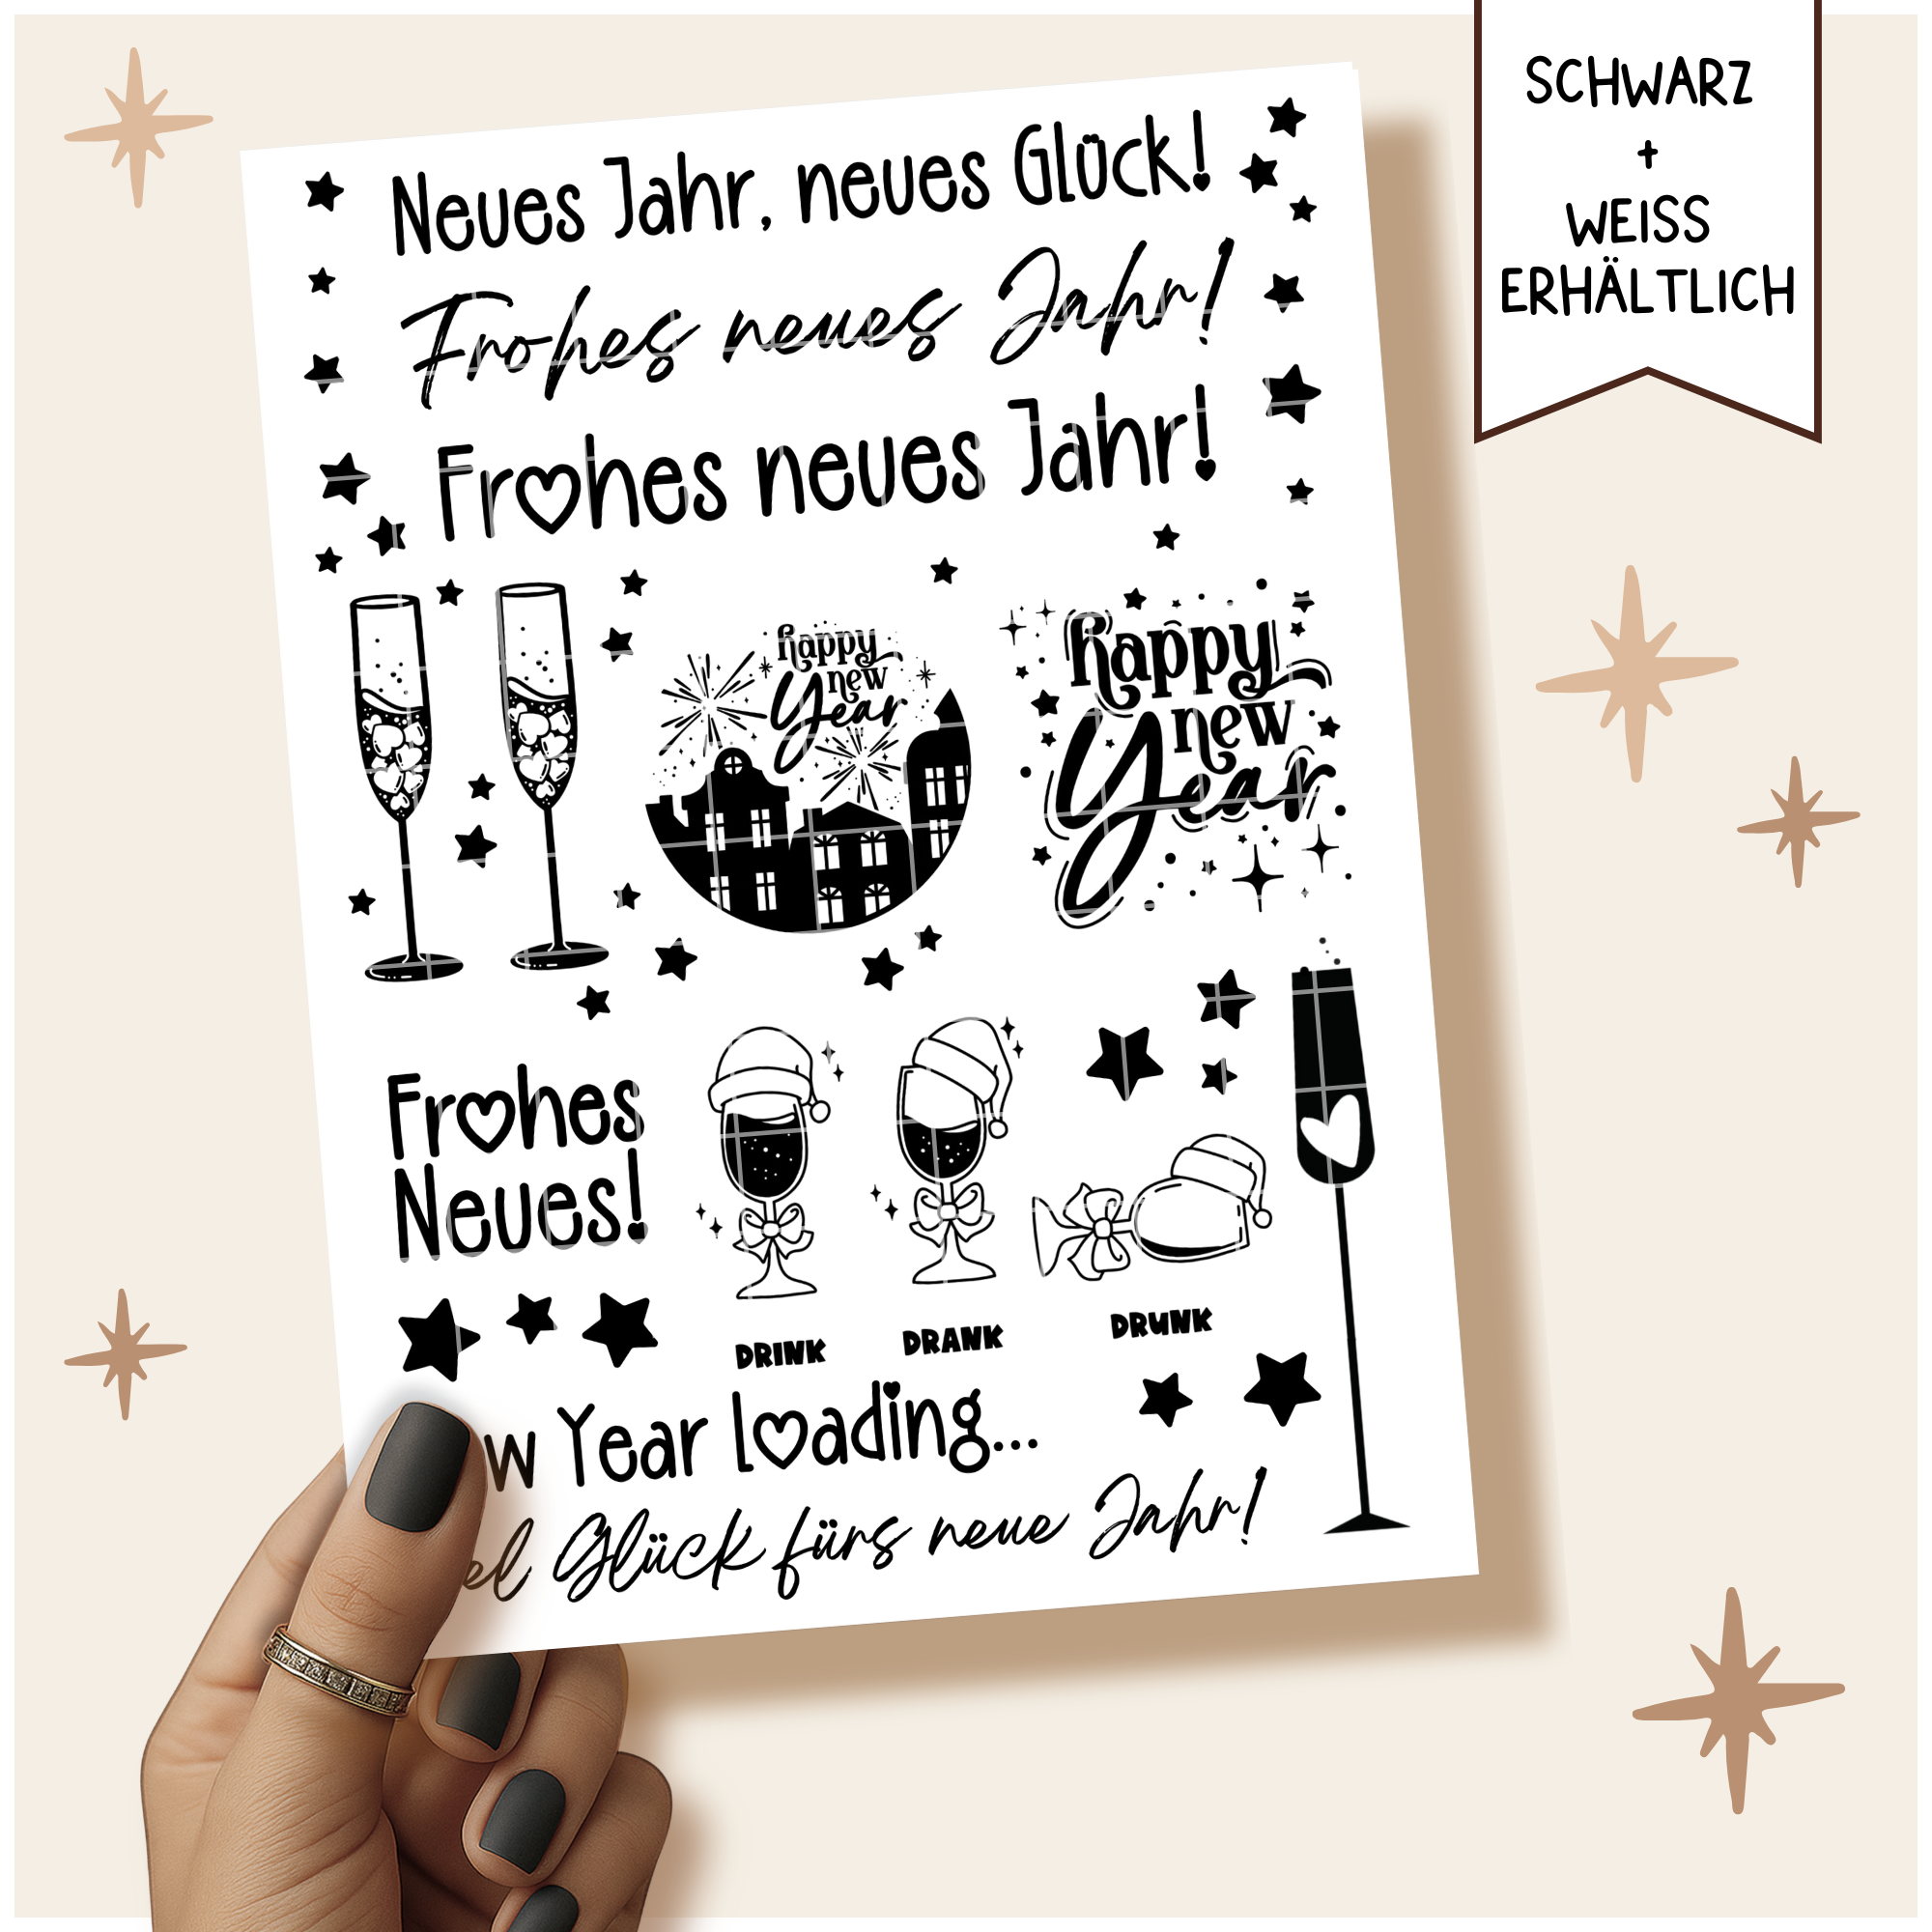 SCHWARZ
+
WEISS
ERHÄLTLICH
Neues Jahr, neues Glück!
Frohes neues Jahr!
Frohes neues Jahr!
happy
new
year
happy
new
year
Frohes
Neues!
DRINK DRANK DRUNK
w Year loading...
el Glück fürs neue Jahr!